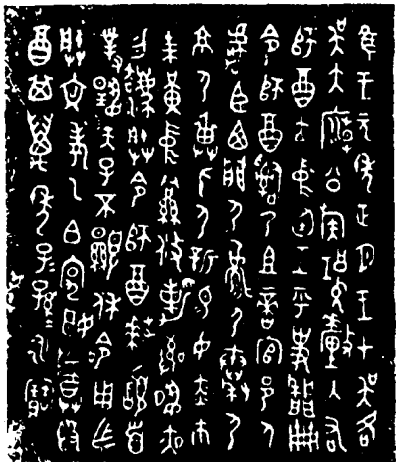 隹王元年正月王才吳各
吳大廟公族釐入右
師酉立中廷王乎史册
令師酉嗣乃且啻官邑人
虎臣西門尸尸秦尸
京尸身尸新易女赤巿
朱黃中攸勒敬夙夜勿
灋朕令師酉拜䭫首
對揚天子不顯休令用乍
朕文考乙白宄姬尊𣪘
酉其萬年子孫永寶用